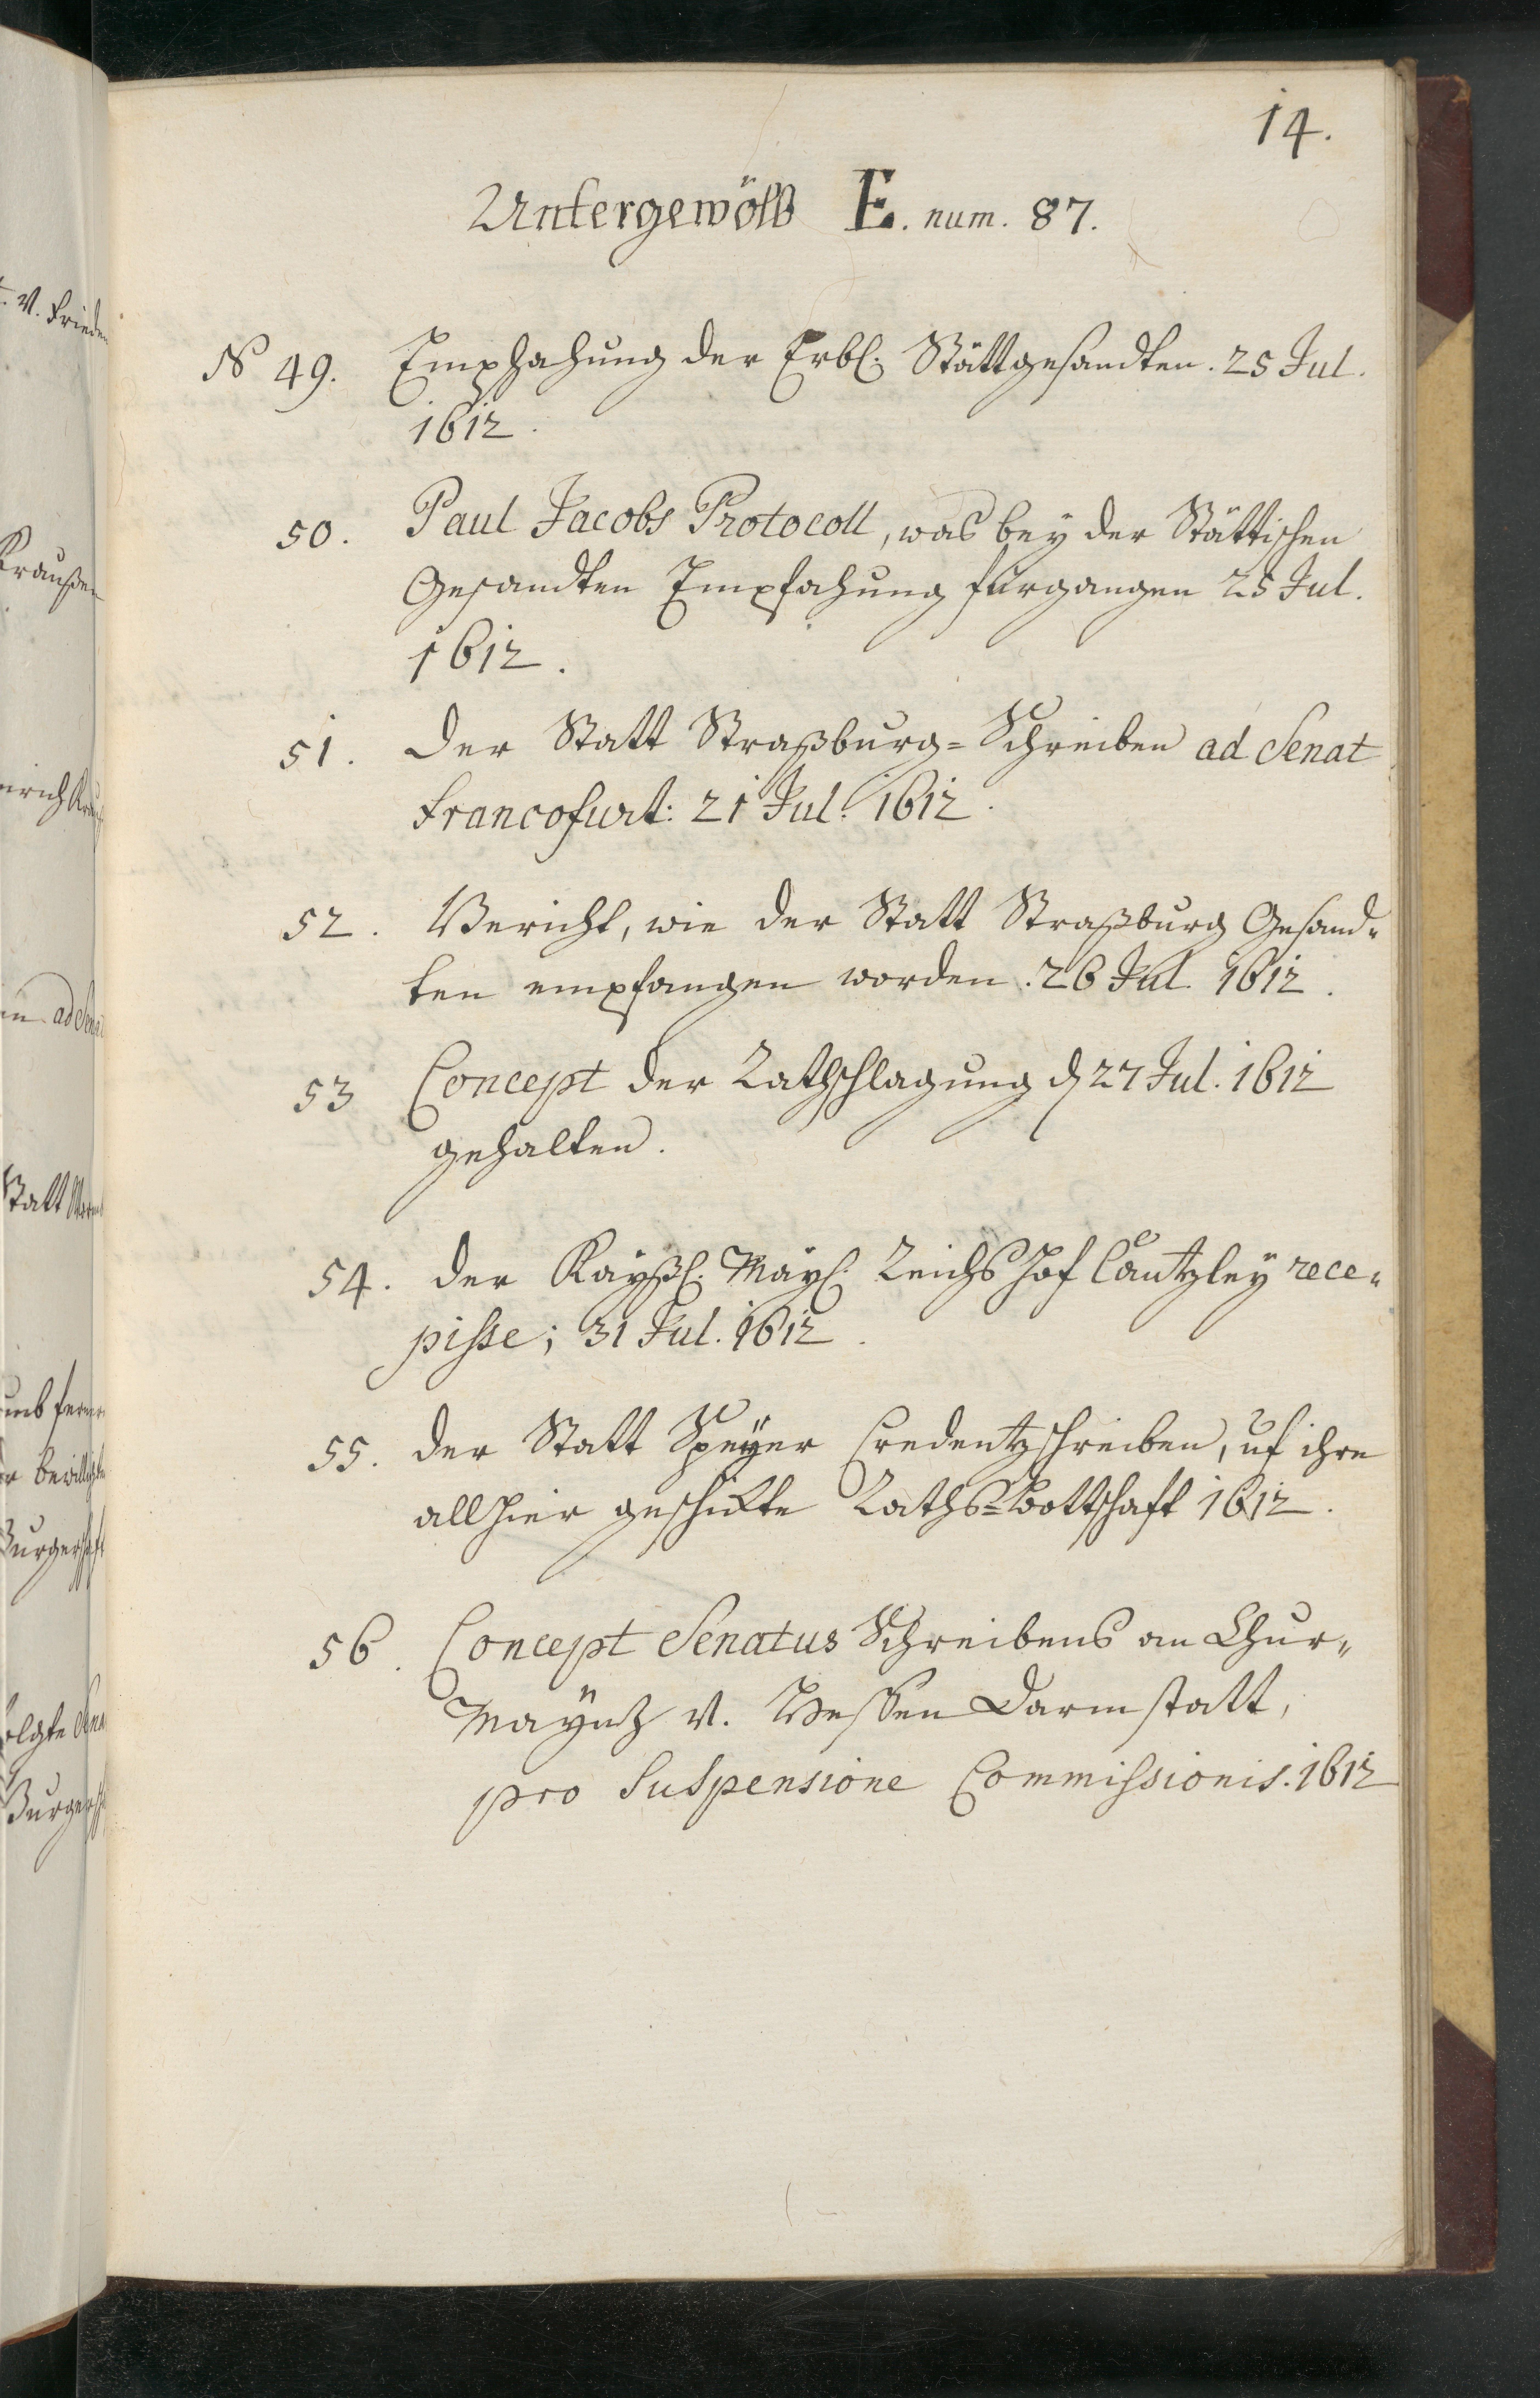 14.
Untergewölb E. num. 87.
N 49. Emphahung der Erbl. Stättgesandten. 25 Jul.
1612.
50. Paul Jacobs Protocoll, was bey der Stättischen
Gesandten Empfahung fürgangen 25 Jul.
1612.
51. Der Statt Straßburg=Schreiben ad Senat
Francofurt: 21 Jul. 1612.
52. Bericht, wie der Statt Straßburg Gesand=
ten empfangen worden. 26 Jul. 1612.
53 Concept der Rathschlagung d 27 Jul. 1612
gehalten.
54. Der Kayßl. Mayl. Reichs Hof Cantzley rece=
pisse; 31 Jul. 1612.
55. Der Statt Speyer Credentzschreiben, uf ihre
allhier geschickte Raths=Bottschaft 1612.
56. Concept Senatus Schreibens an Chur=
Mayntz v. Hessen Darmstatt,
pro Suspensione Commissionis. 1612
v. Frieden
Kraußen
ad Sena
Statt
Burgerschaft